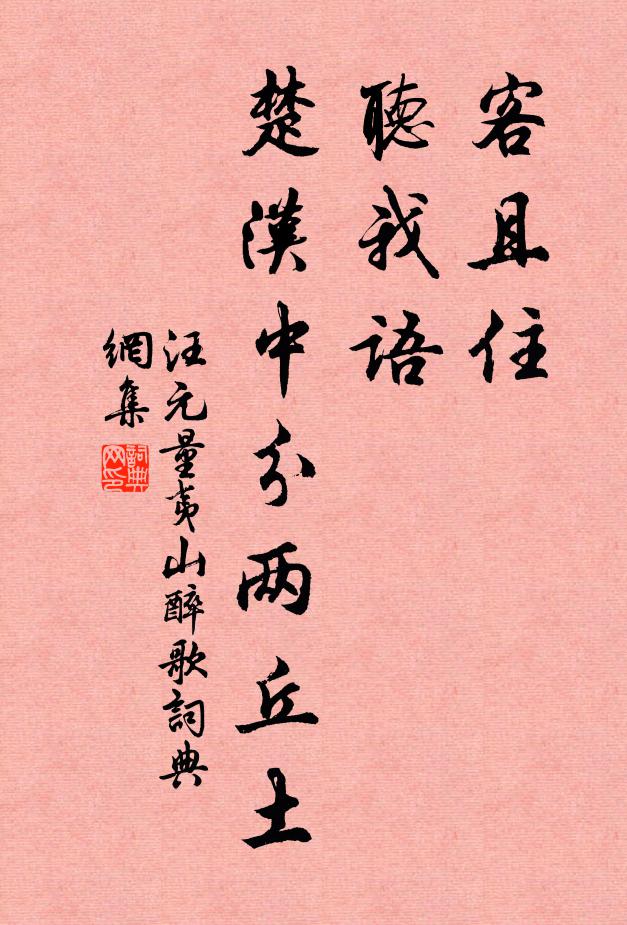 客且住
聽我語
楚漢中分两丘土
汪元量夷山醉歌詞典
網集
詞典网印